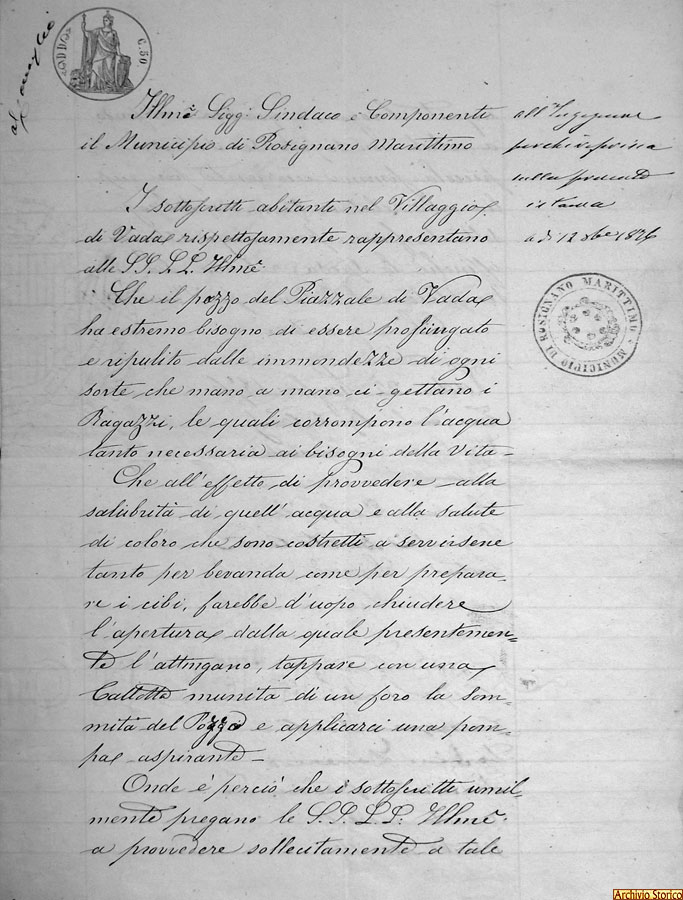 C. 50
Illmi Sigg. Sindaco e Componenti
il Municipio di Rosignano Marittimo
I sottoscritti abitanti nel Villaggio
di Vada rispettosamente rappresentano
alle S.S. L.L. Illme
Che il pozzo del Piazzale di Vada
ha estremo bisogno di essere prosciugato
e ripulito dalle immondezze di ogni
sorte che mano a mano ci gettano i
Ragazzi, le quali corrompono l'acqua
tanto necessaria ai bisogni della Vita-
Che all'effetto di provvedere alla
salubrità di quell'acqua e alla salute
di coloro che sono costretti a servirsene
tanto per bevanda come per prepara-
re i cibi, farebbe d'uopo chiudere
l'apertura dalla quale presentemen-
te l'attingano, tappare con una
Callotta munita di un foro la som-
mità del Pozzo e applicarci una pom-
pa aspirante-
Onde è perciò che i sottoscritti umil-
mente pregano le S.S. L.L. Illme
a provvedere sollecitamente a tale
all'Ingegnere
perchè
sulla presente
istanza
a dì 12 1876
MUNICIPIO DI ROSIGNANO MARITTIMO
Archivio Storico